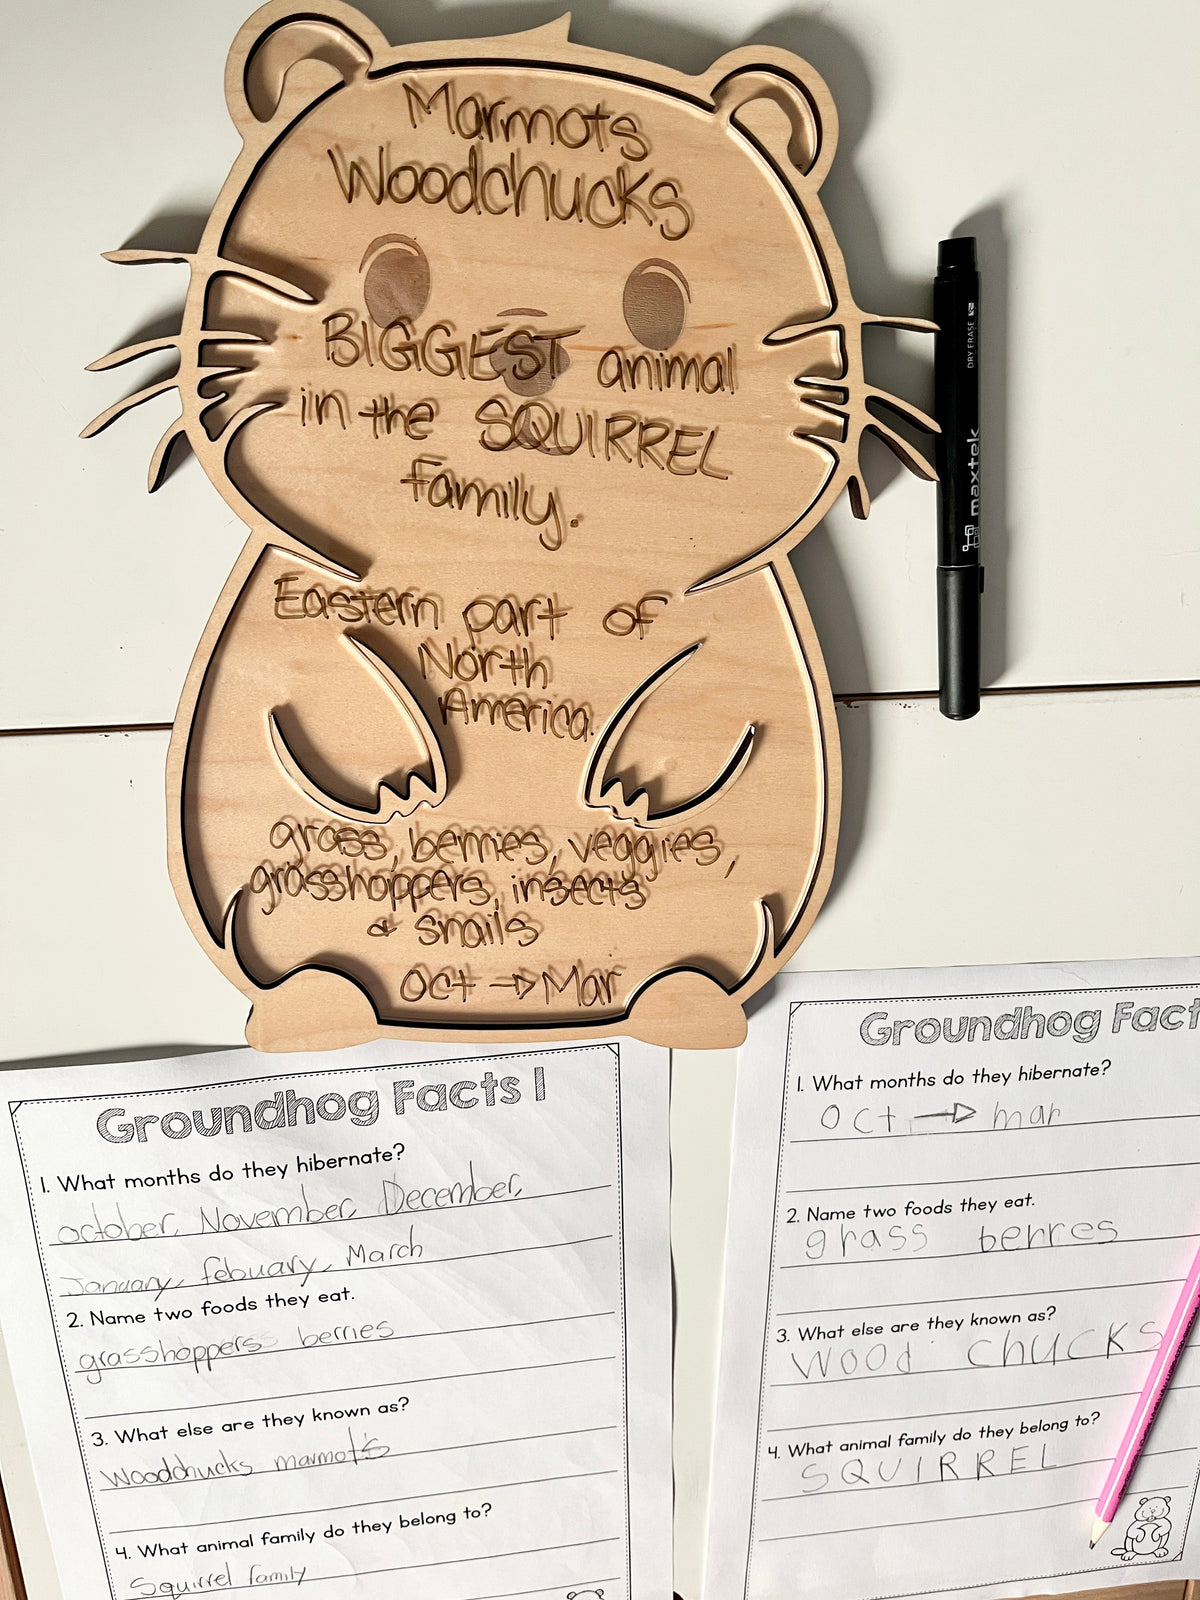 Marmots
Woodchucks
BIGGEST animal
in the SQUIRREL
family.
Eastern part of
North
America.
grass, berries, veggies,
grasshoppers, insects
& snails
Oct → Mar
DRY ERASE
maxtek
Groundhog Facts 1
1. What months do they hibernate?
october, November, December,
January, febuary, March
2. Name two foods they eat.
grasshoppers berries
3. What else are they known as?
Woodchucks marmot's
4. What animal family do they belong to?
Squirrel family
Groundhog Fact
1. What months do they hibernate?
Oct → mar
2. Name two foods they eat.
grass berres
3. What else are they known as?
Wood chucks
4. What animal family do they belong to?
SQUIRREL